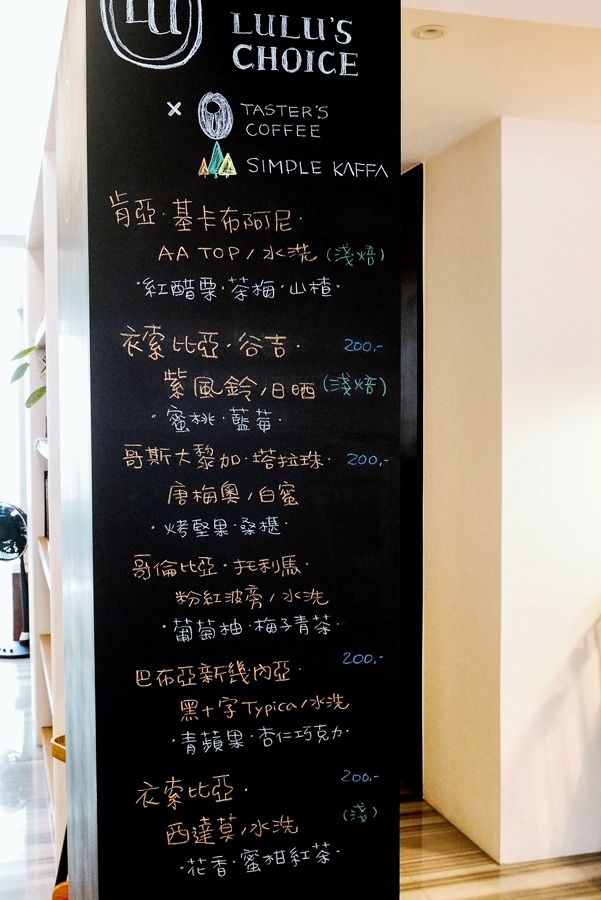 LU
LULU'S
CHOICE
× TASTER'S
COFFEE
SIMPLE KAFFA
肯亞·基卡布阿尼·
AA TOP / 水洗 (淺焙)
·紅醋栗·茶梅·山楂·
衣索比亞·谷吉· 200.-
紫風鈴/日晒 (淺焙)
·蜜桃·藍莓·
哥斯大黎加·塔拉珠· 200.-
唐梅奧/白蜜
·烤堅果·桑椹·
哥倫比亞·托利馬·
粉紅波旁/水洗
·葡萄柚·梅子青茶·
200.-
巴布亞新幾內亞·
黑十字Typica/水洗
·青蘋果·杏仁巧克力·
200.-
衣索比亞·
(淺)
西達莫/水洗
·花香·蜜柑紅茶·